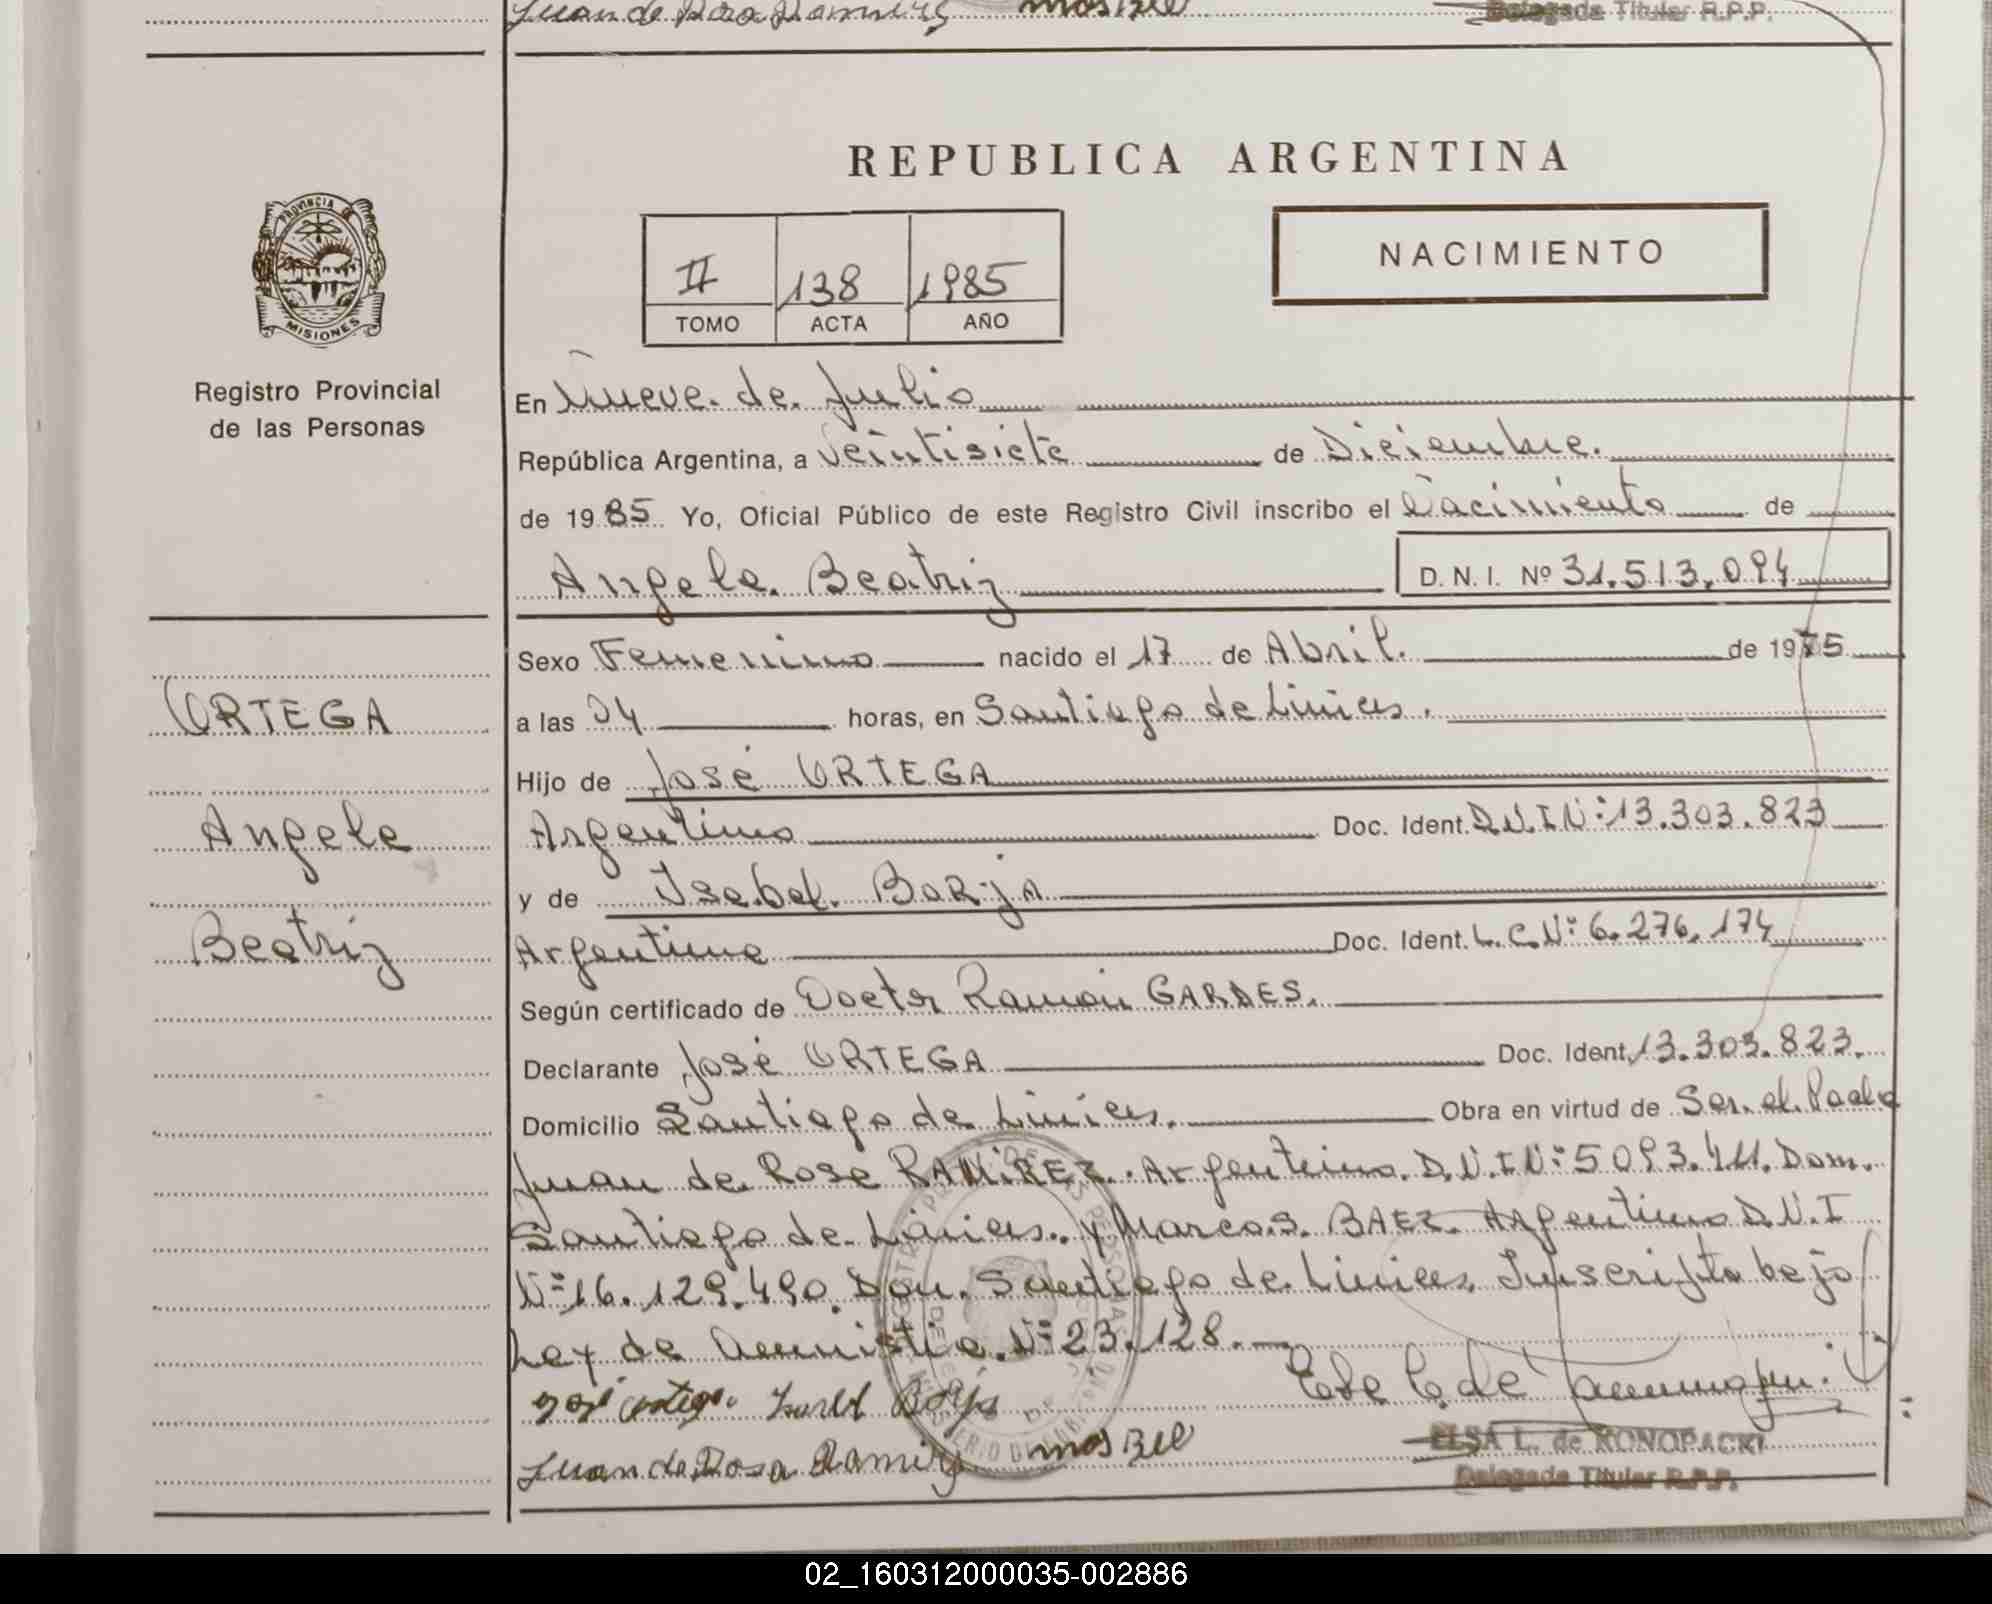 Juan de Rosa Ramirez
Delegada Titular R.P.P.
REPUBLICA ARGENTINA
PROVINCIA DE
MISIONES
Registro Provincial
de las Personas
II 138 1985
TOMO ACTA AÑO
NACIMIENTO
En Nueve de Julio
República Argentina, a veintisiete de Diciembre.
de 1985 Yo, Oficial Público de este Registro Civil inscribo el Nacimiento de
Angela Beatriz
D. N. I. Nº 31.513.094
Sexo Femenino nacido el 17 de Abril. de 1975
ORTEGA
a las 04 horas, en Santiago de Liniers.
Hijo de José ORTEGA
Angela
Argentino Doc. Ident. D.N.I N: 13.303.823
y de Isabel BORJA
Beatriz
Argentina Doc. Ident. L.C.N: 6.276.174
Según certificado de Doctor Ramón GARDES.
Declarante José ORTEGA Doc. Ident. 13.303.823.
Domicilio Santiago de Liniers. Obra en virtud de Ser el Padre
Juan de Rosa RAMIREZ. Argentino. D.N.I N: 5093.411. Dom.
Santiago de Liniers. y Marcos BAEZ. Argentino D.N.I
N: 16.129.490. Dom. Santiago de Liniers. Inscripto bajo
Ley de Amnistia. N: 23.128.
José ortega Isabel Borja
Juan de Rosa Ramirez
ELSA L. de KONOPACKI
Delegada Titular R.P.P.
02_160312000035-002886